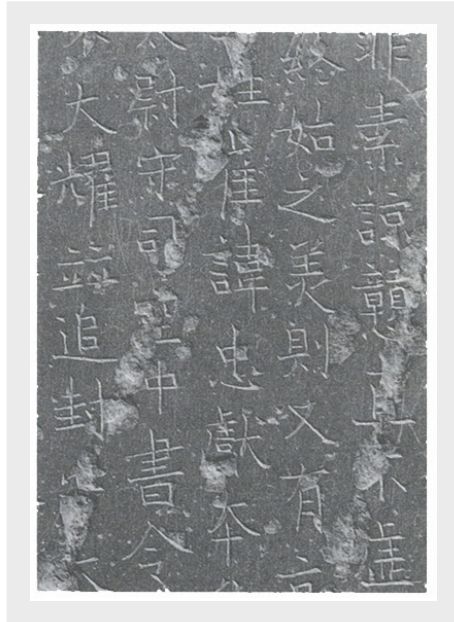 非素諒其不虛
終始之美則又有
姓崔諱忠獻本
尉守司空中書令
大耀並追封